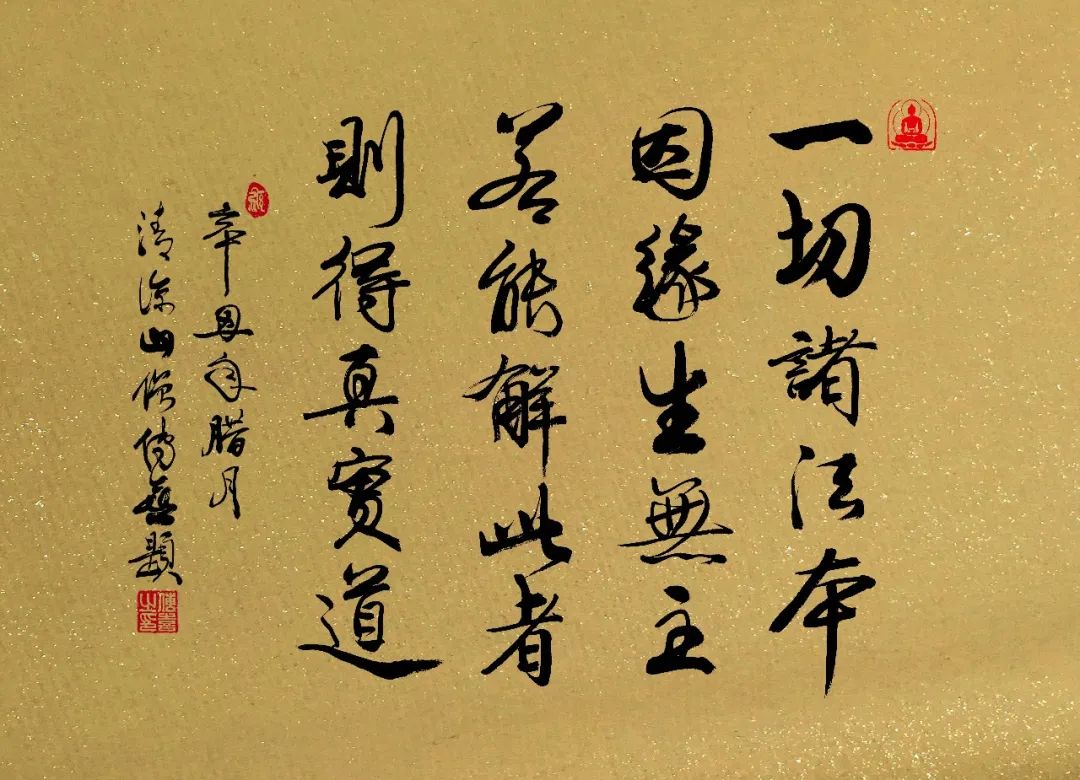 一切諸法本
因緣生無主
若能解此者
則得真實道
辛丑年腊月
清涼山僧傳喜題